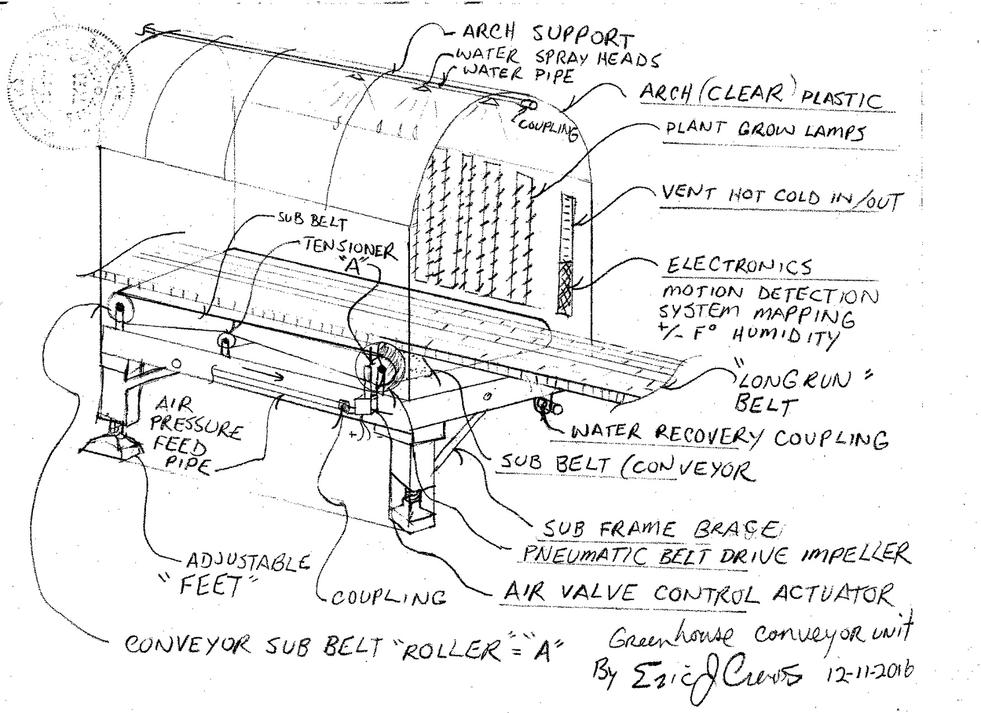 ARCH SUPPORT
WATER SPRAY HEADS
WATER PIPE
COUPLING
ARCH (CLEAR) PLASTIC
PLANT GROW LAMPS
VENT HOT COLD IN/OUT
ELECTRONICS
MOTION DETECTION
SYSTEM MAPPING
+/- F° HUMIDITY
SUB BELT
TENSIONER
"A"
"LONG RUN"
BELT
AIR
PRESSURE
FEED
PIPE
+ -
WATER RECOVERY COUPLING
SUB BELT (CONVEYOR
SUB FRAME BRACE
PNEUMATIC BELT DRIVE IMPELLER
AIR VALVE CONTROL ACTUATOR
ADJUSTABLE
"FEET"
COUPLING
CONVEYOR SUB BELT "ROLLER" = "A"
Greenhouse conveyor unit
By Eric J Crews 12-11-2016